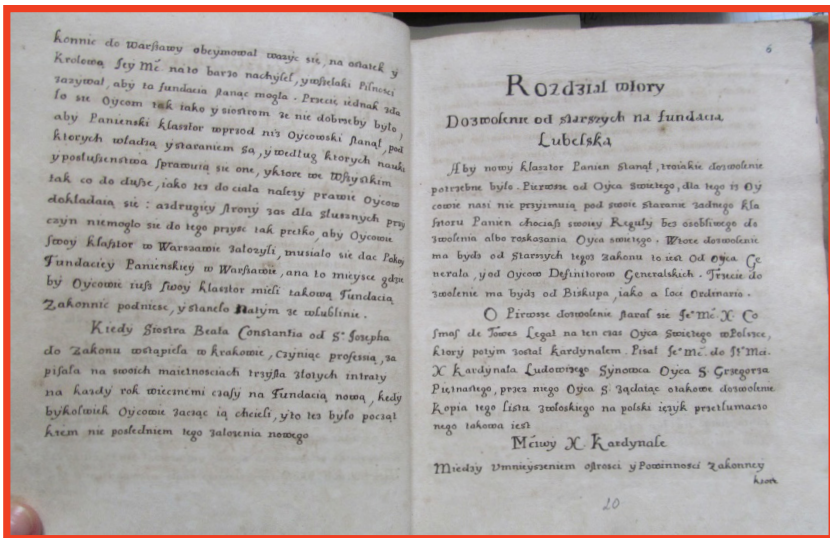 konnic do Warszawy obeymował ważyc się, na ostatek y
Krolową Jey Mć nato barzo nachylił, y wszelaki Pilnosci
zazywał, aby ta fundacia stanąc mogła. Przecie iednak zda
ło sie Oycom tak iako y siostrom że nie dobrzeby było,
aby Panienski klasztor wprzod niż Oycowski stanął, pod
ktorych władzą y staraniem są, y według ktorych nauki
y posłuszenstwa sprawuią sie one, y ktore we Wszystkim
tak co do dusze, iako tez do ciała nalezy prawie Oycow
dokładaią się: a z drugiey strony zas dla słusznych przy
czyn niemogło sie do tego przysc tak prętko, aby Oycowie
swoy klasztor w Warszawie założyli, musiało się dac Pokoy
Fundaciey Panienskiey w Warszawie, a na to mieysce gdzie
by Oycowie iusz swoy klasztor mieli takową Fundacią
Zakonnic podniesc, y stanęło Natym że w Lublinie.
Kiedy Siostra Beata Constantia od S° Josepha
do Zakonu wstąpiela w krakowie, czyniąc professią, za
pisała na swoich maietnosciach trzysta złotych intraty
na kazdy rok wiecznemi czasy na Fundacią nową, kedy
bykolwiek Oycowie zacząc ią chcieli, y to tez było począt
kiem nie posledniem tego załozenia nowego
6
Rozdział wtory
Dozwolenie od starszych na fundacią
Lubelską
Aby nowy klasztor Panien stanął, troiakie dozwolenie
potrzebne było. Pierwsze od Oyca Swietego, dla tego iz Oy
cowie nasi nie przyimuią pod swoie staranie zadnego kla
sztoru Panien chociasz swoiey Reguły bez osobliwego do
zwolenia albo roskazania Oyca swietego. Wtore dozwolenie
ma bydz od Starszych tegoż zakonu to iest Od Oyca Ge
nerała, y od Oycow Definitorow Generalskich. Trzecie do
zwolenie ma bydz od Biskupa, iako a loci Ordinario.
O Pirwsze dozwolenie starał sie Je° Mć. X. Co
smos de Torres Legat na ten czas Oyca Swietego w Polszce,
ktory potym został Kardynałem. Pisał Je° Mć. do
X Kardynała Ludowizego Synowca Oyca S. Grzegorza
Pietnastego, przez niego Oyca S. ządaiąc otakowe dozwolenie
Kopia tego listu zwłoskiego na polski ięzyk przetłumaczo
nego takowa iest
Mciwy X. Kardynale
Miedzy Umnieyszeniem ostrosci y Powinnosci Zakonney
20